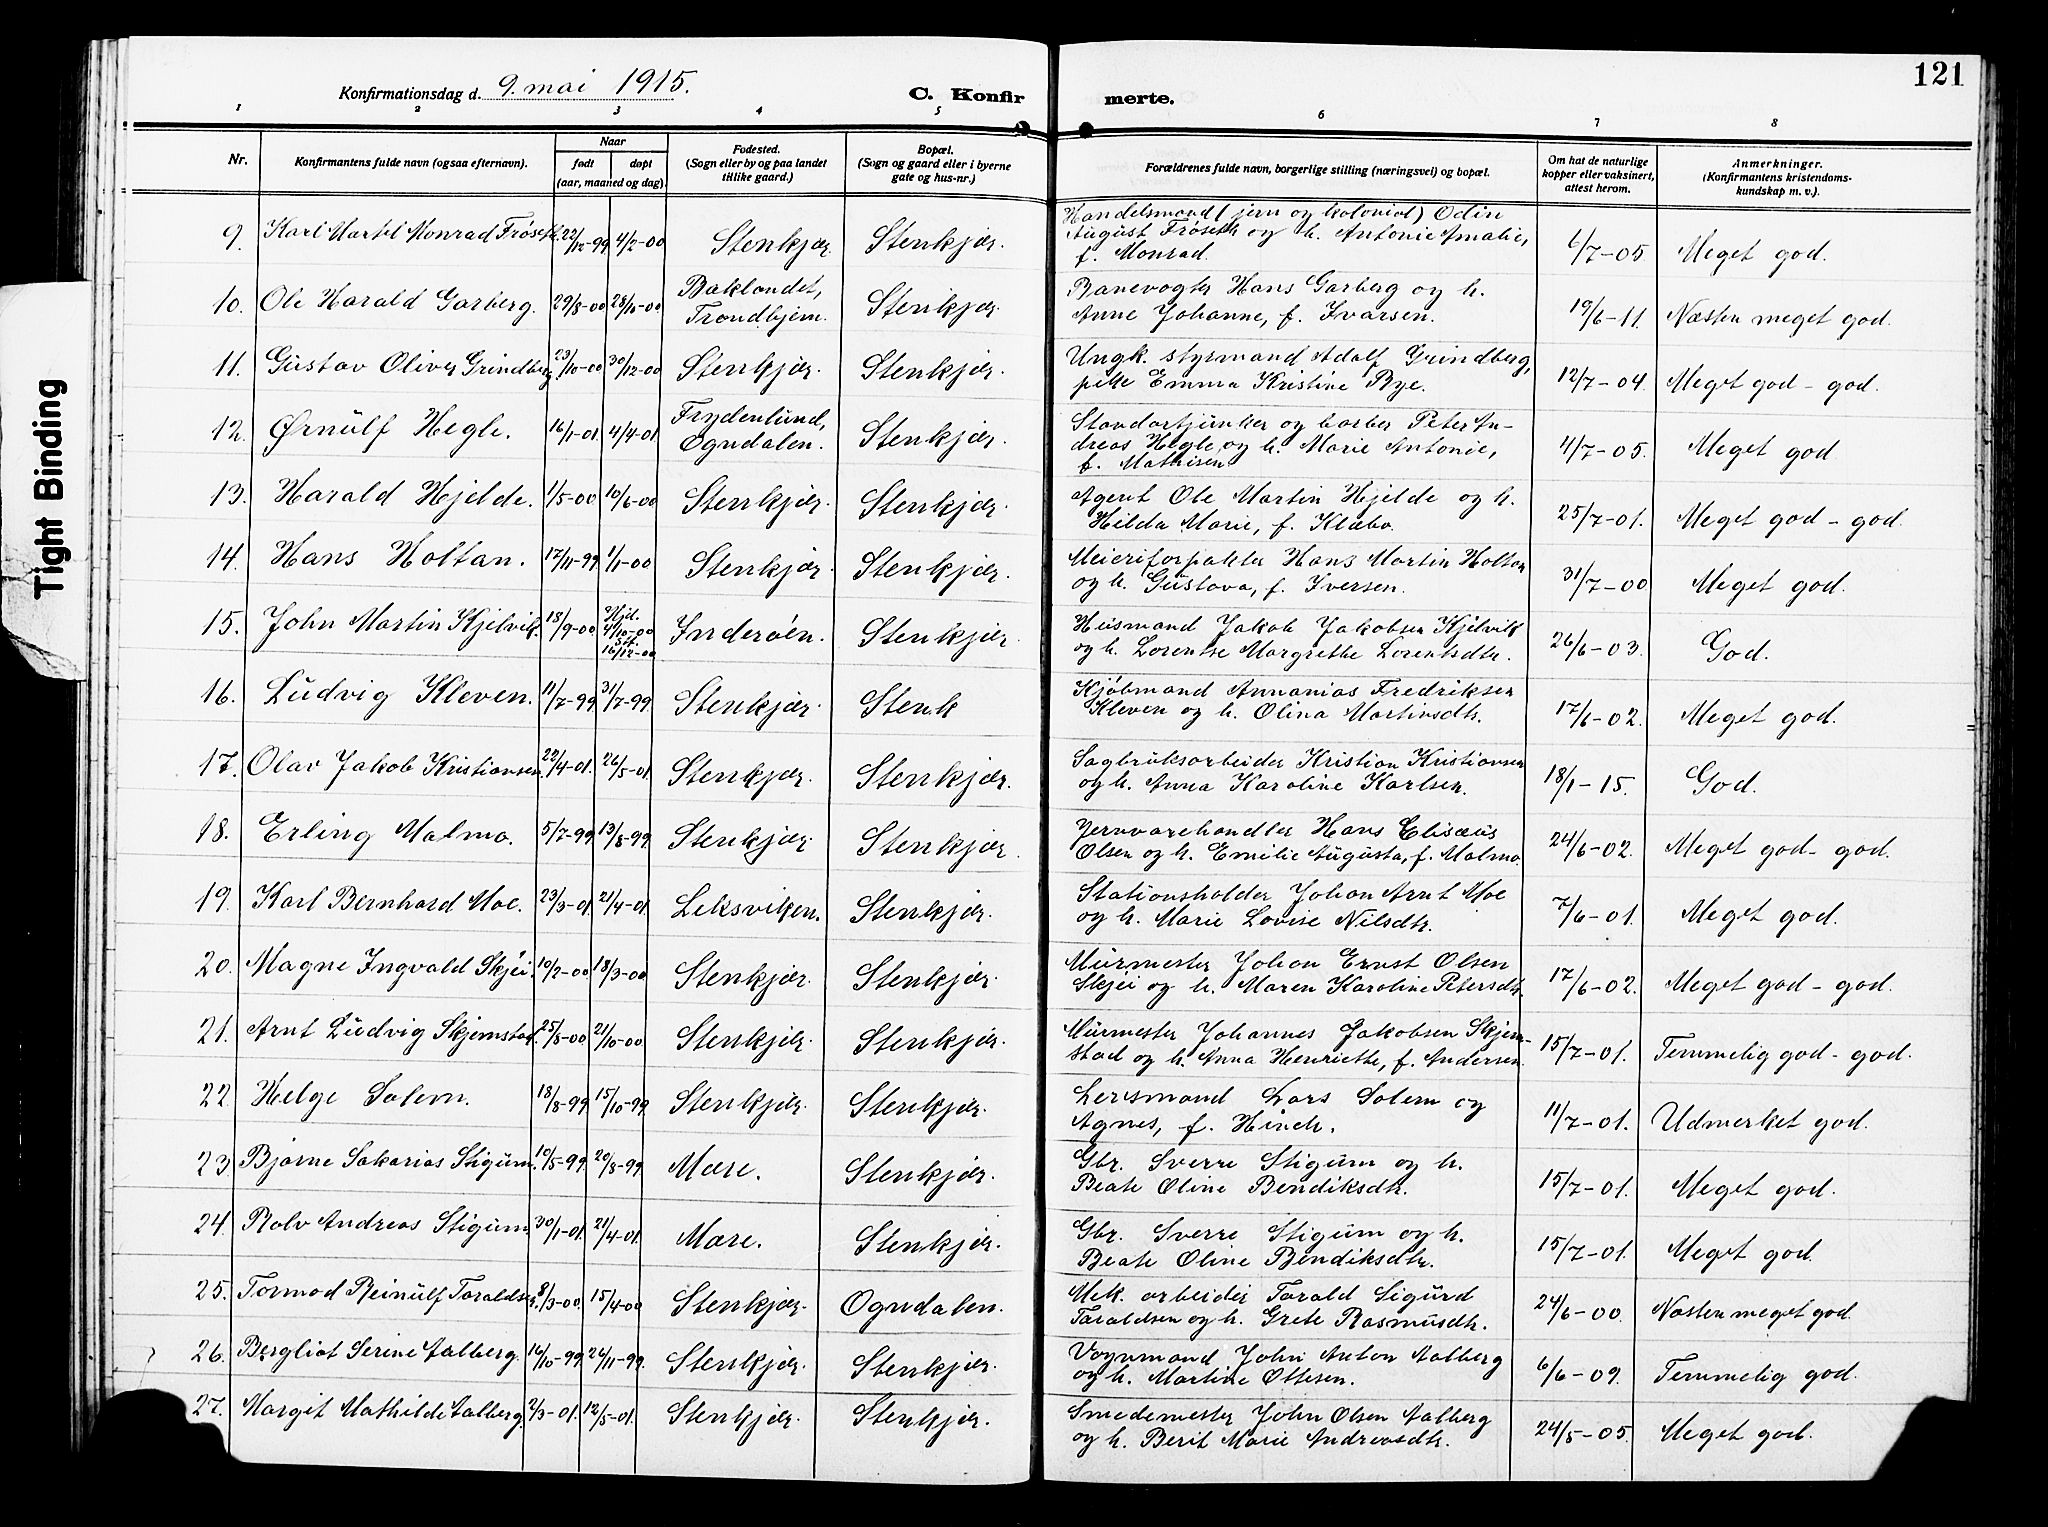 Tight Binding
121
Konfirmationsdag d. 9. mai 1915.
C. Konfir merte.
1 2 3 4 5 6 7 8
Nr.
Konfirmantens fulde navn (ogsaa efternavn).
Naar
født døpt
(aar, maaned og dag).
Fødested.
(Sogn eller by og paa landet
tillike gaard.)
Bopæl.
(Sogn og gaard eller i byerne
gate og hus-nr.)
Forældrenes fulde navn, borgerlige stilling (næringsvei) og bopæl.
Om hat de naturlige
kopper eller vaksinert,
attest herom.
Anmerkninger.
(Konfirmantens kristendoms-
kundskap m. v.).
9. Karl Martel Monrad Frøseth 22/12-99 4/2-00 Stenkjær. Stenkjær.
Handelsmand (jern og kolonial) Odin
August Frøseth og h. Antonie Amalie,
f. Monrad.
6/7-05 Meget god.
10. Ole Harald Garberg. 29/8-00 28/10-00 Baklandet,
Trondhjem. Stenkjær.
Banevogter Hans Garberg og h.
Anne Johanne, f. Ivarsen.
19/6-11. Næsten meget god.
11. Gustav Oliver Grindberg. 23/10-00 30/12-00 Stenkjær. Stenkjær.
Ungk. styrmand Adolf Grindberg,
pike Emma Kristine Bye.
12/7-04. Meget god - god.
12. Ørnulf Hegle. 16/1-01. 4/4-01 Frydenlund,
Ogndalen. Stenkjær.
Standartjunker og barber Peter An-
dreas Hegle og h. Marie Antonie,
f. Mathisen
4/7-05. Meget god
13. Harald Hjelde. 1/5-00 10/6-00 Stenkjær. Stenkjær.
Agent Ole Martin Hjelde og h.
Hilda Marie, f. Klæbo.
25/7-01. Meget god - god.
14. Hans Holtan. 17/11-99 1/1-00 Stenkjær. Stenkjær.
Meieriforpakter Hans Martin Holtan
og h. Gustava, f. Iversen.
31/7-00 Meget god.
15. John Martin Kjelvik. 18/9-00. Hjd.
4/10-00
St.
16/12-00 Inderøen. Stenkjær.
Husmand Jakob Jakobsen Kjelvik
og h. Lorentse Margrethe Lorentsdtr.
26/6-03. God.
16. Ludvig Kleven. 11/7-99 31/7-99. Stenkjær. Stenk
Kjøbmand Annanias Fredriksen
Kleven og h. Olina Martinsdtr.
17/6-02. Meget god.
17. Olav Jakob Kristiansen. 22/4-01. 26/5-01. Stenkjær. Stenkjær.
Sagbruksarbeider Kristian Kristiansen
og h. Anna Karoline Karlsen.
18/1-15. God.
18. Erling Malmo. 5/7-99 13/8-99. Stenkjær. Stenkjær.
Jernvarehandler Hans Elisæus
Olsen og h. Emilie Augusta, f. Malmo.
24/6-02. Meget god - god.
19. Karl Bernhard Moe. 23/3-01. 21/4-01. Leksviken. Stenkjær.
Stationsholder Johan Arnt Moe
og h. Marie Lovise Nilsdtr.
7/6-01. Meget god.
20. Magne Ingvald Skjei. 10/2-00 18/3-00 Stenkjær. Stenkjær.
Murmester Johan Ernst Olsen
Skjei og h. Maren Karoline Petersdtr.
17/6-02. Meget god - god.
21. Arnt Ludvig Skjemstad. 25/8-00 21/10-00 Stenkjær. Stenkjær.
Murmester Johannes Jakobsen Skjem-
stad og h. Anna Henriette, f. Andersen.
15/7-01. Temmelig god - god.
22. Helge Solem. 18/8-99 15/10-99 Stenkjær. Stenkjær.
Lensmand Lars Solem og
Agnes, f. Hinck.
11/7-01. Udmerket god.
23. Bjarne Sakarias Stigum. 10/5-99 20/8-99 Mære. Stenkjær.
Gbr. Sverre Stigum og h.
Beate Oline Bendiksdtr.
15/7-01. Meget god.
24. Rolv Andreas Stigum. 30/1-01. 21/4-01. Mære. Stenkjær.
Gbr. Sverre Stigum og h.
Beate Oline Bendiksdtr.
15/7-01. Meget god.
25. Tormod Reinulf Taraldsen. 8/3-00. 15/4-00 Stenkjær. Ogndalen.
Mek. arbeider Tarald Sigurd
Taraldsen og h. Grete Rasmusdtr.
24/6-00. Næsten meget god.
26. Bergliot Serine Aalberg. 16/10-99. 26/11-99. Stenkjær. Stenkjær.
Vognmand John Anton Aalberg
og h. Martine Ottesen.
6/6-09. Temmelig god.
27. Margit Mathilde Aalberg. 2/3-01. 12/5-01. Stenkjær. Stenkjær.
Smedemester John Olsen Aalberg
og h. Berit Marie Andreasdtr.
24/5-05. Meget god.